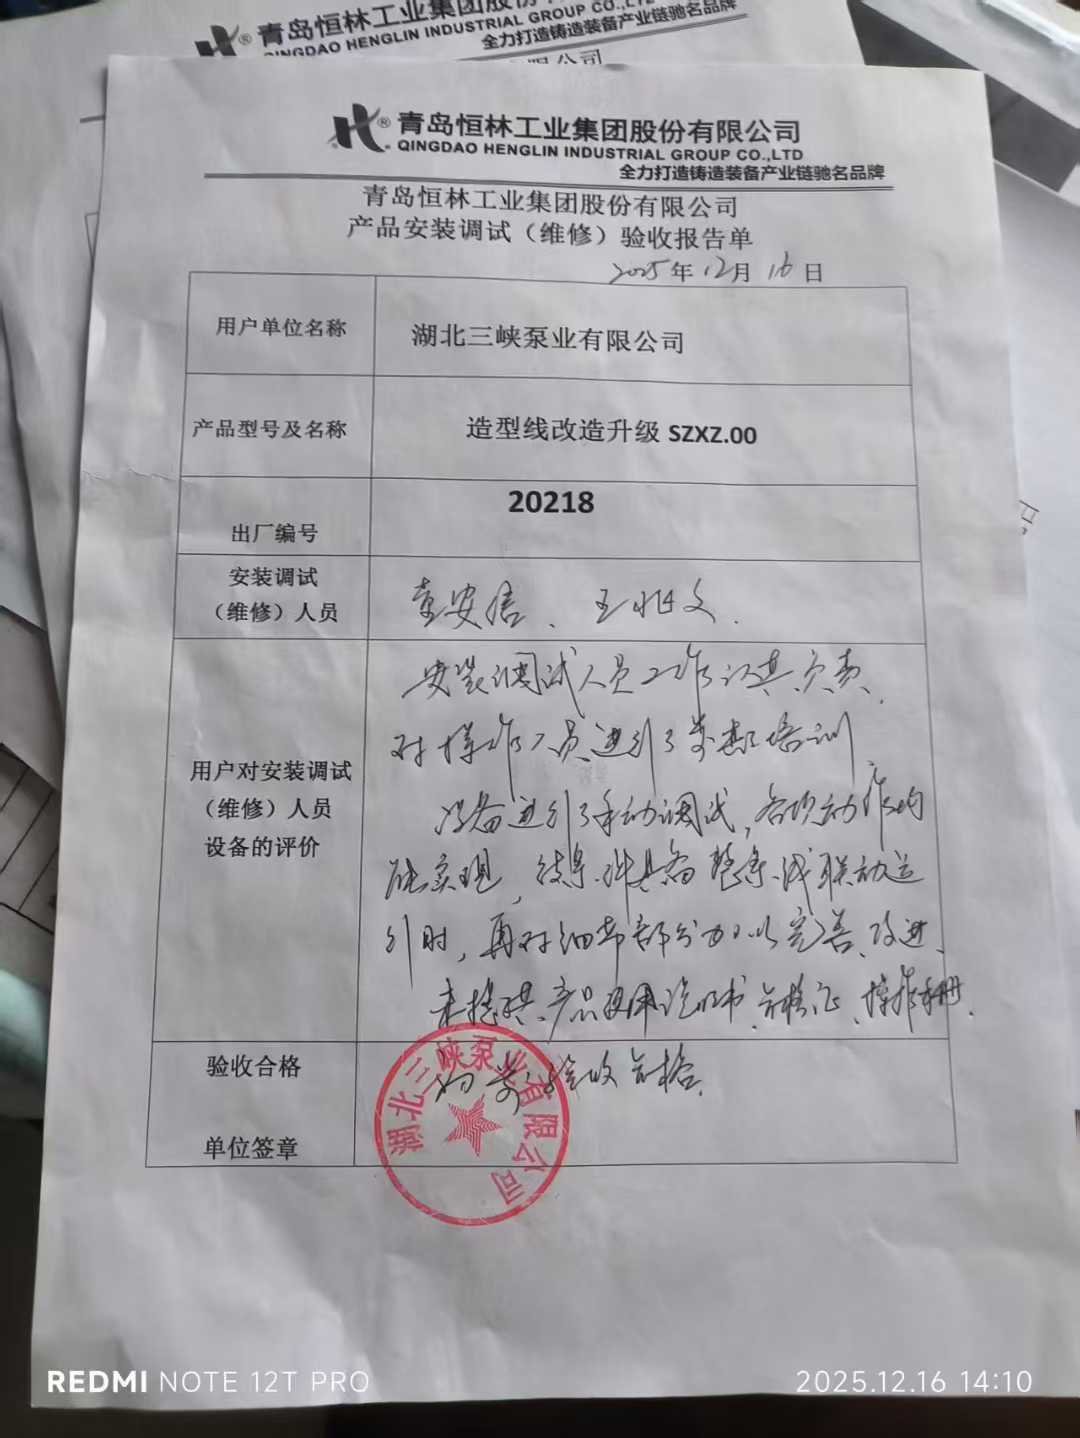 青岛恒林工业集团股份
QINGDAO HENGLIN INDUSTRIAL GROUP CO.,LTD
全力打造铸造装备产业链驰名品牌
限公司
青岛恒林工业集团股份有限公司
QINGDAO HENGLIN INDUSTRIAL GROUP CO.,LTD
全力打造铸造装备产业链驰名品牌
青岛恒林工业集团股份有限公司
产品安装调试（维修）验收报告单
2025年12月16日
用户单位名称 湖北三峡泵业有限公司
产品型号及名称 造型线改造升级 SZXZ.00
20218
出厂编号
安装调试
（维修）人员
王兆文.
用户对安装调试
（维修）人员
设备的评价
安装调试人员工作认真、负责、
对操作人员进行了考勤培训
设备进行了手动调试，各项动作均
能实现，待条件具备整条线联动运
行时，再对细节部分加以完善、改进、
未提供产品使用说明书、合格证、操作手册.
验收合格
验收合格.
单位签章
湖北三峡泵业有限公司
REDMI NOTE 12T PRO
2025.12.16 14:10